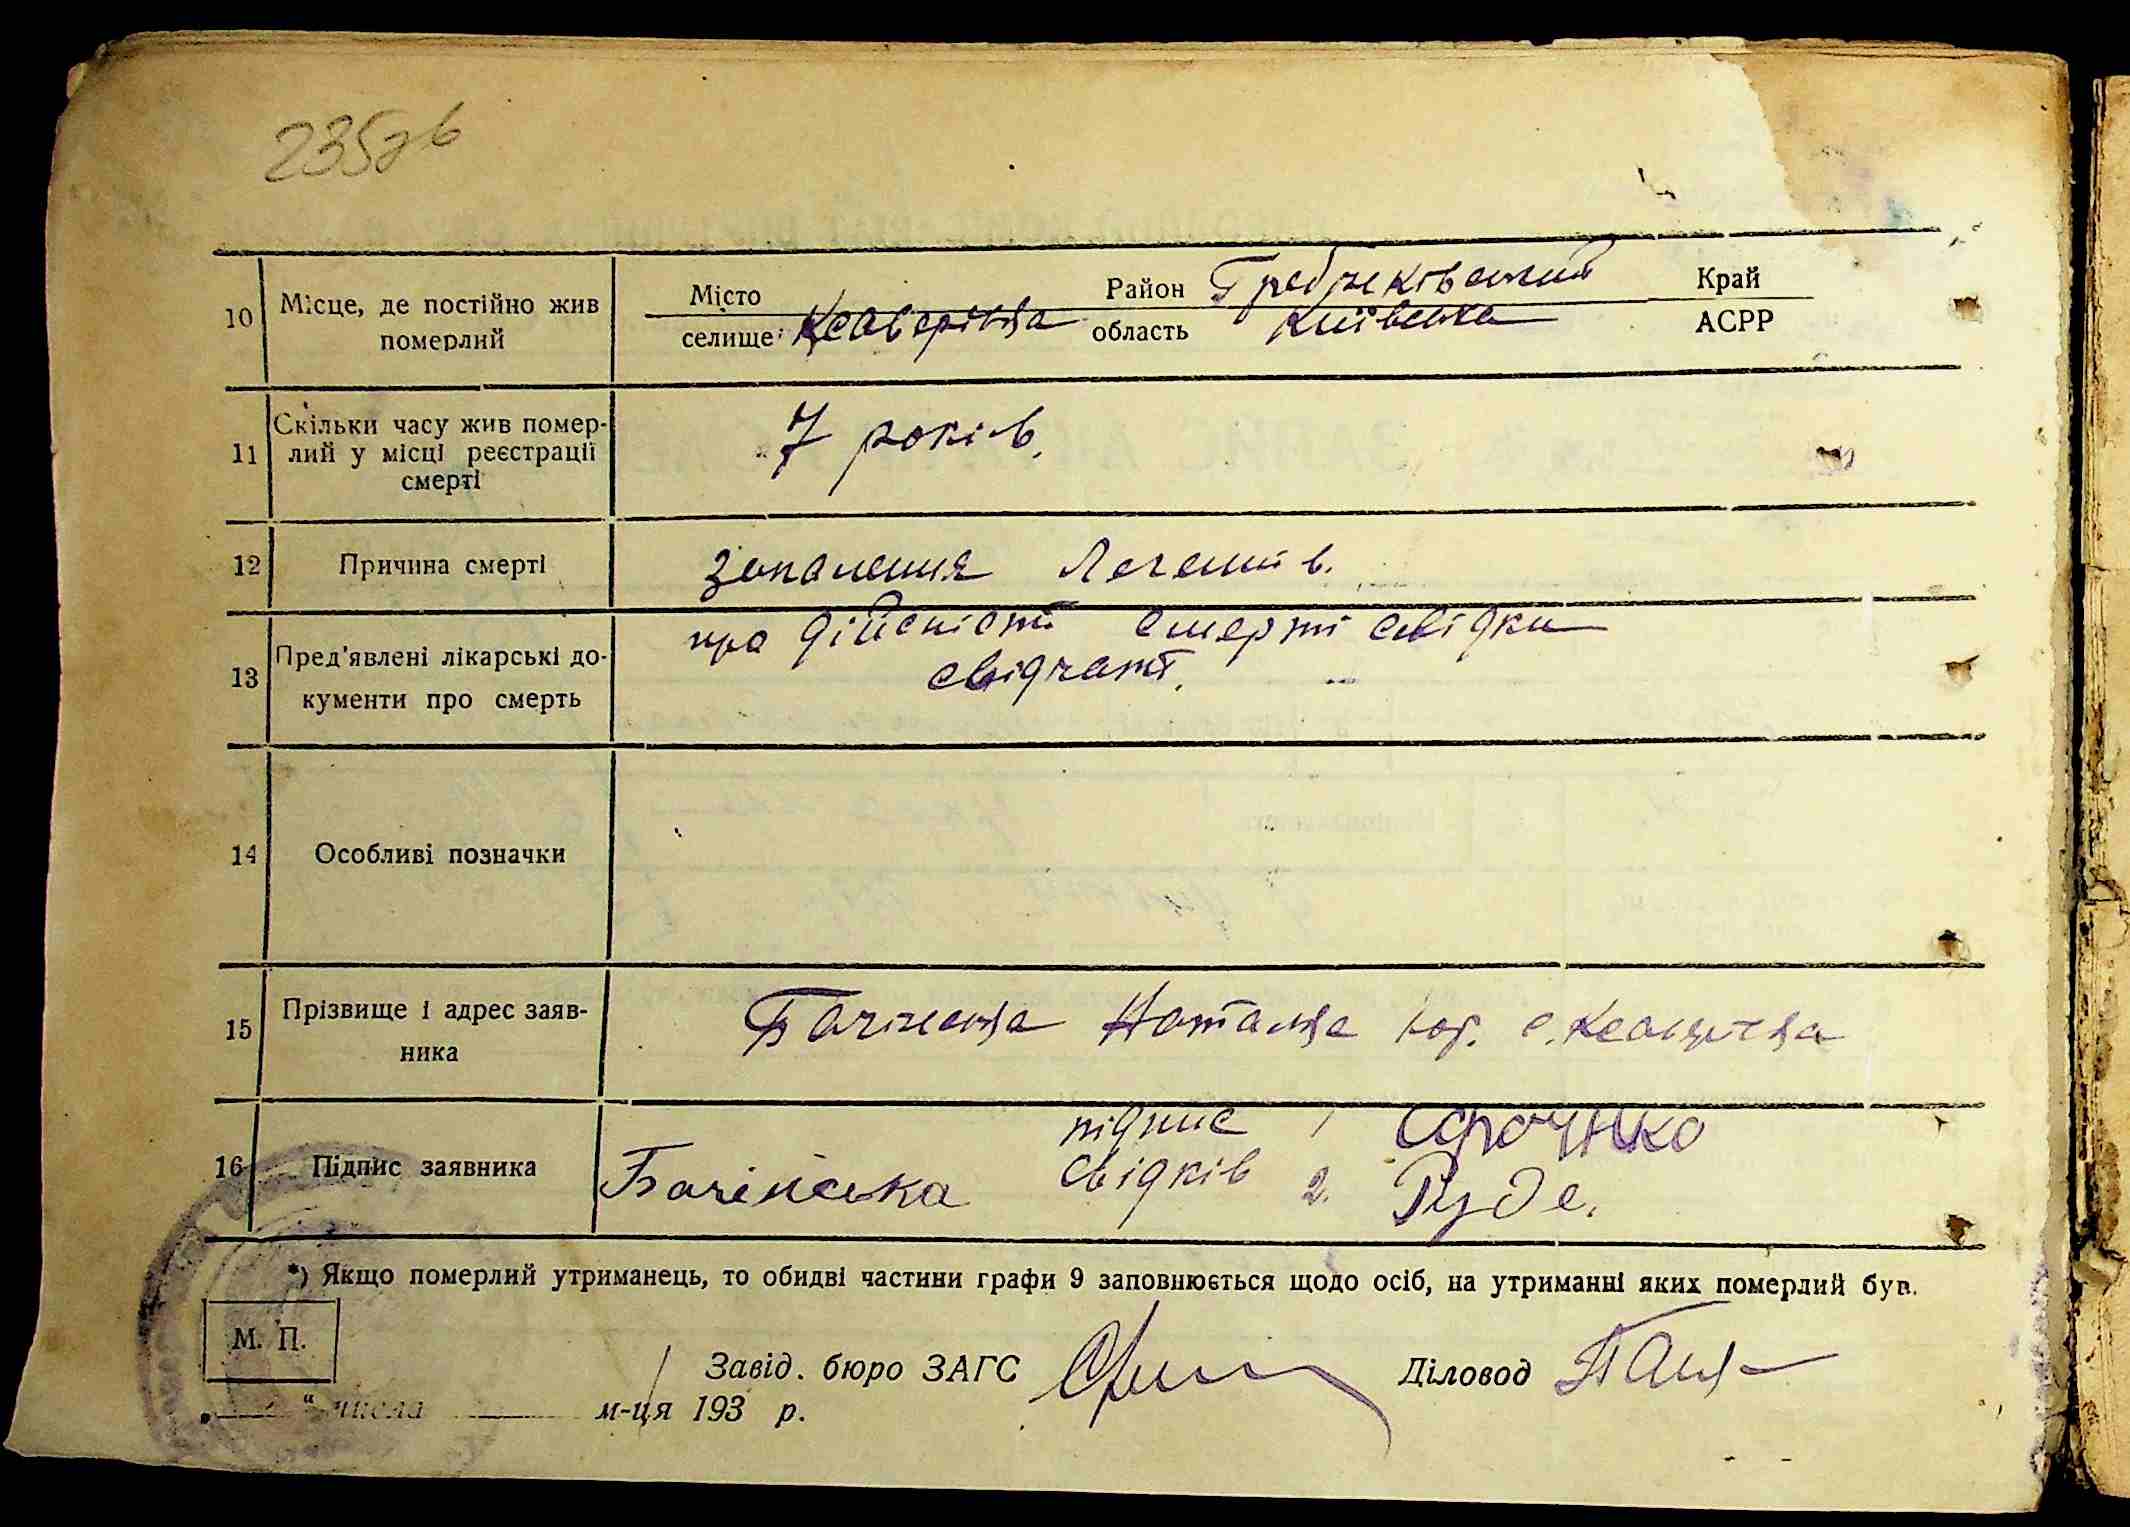 235зв
10 Місце, де постійно жив померлий
Місто Район Гребінківський Край
селище Ксаверівка область Київська АСРР
11 Скільки часу жив помер-
лий у місці реєстрації
смерті
7 років.
12 Причина смерті
запалення Легенів.
13 Пред'явлені лікарські до-
кументи про смерть
про дійсність смерті свідки
свідчать.
14 Особливі позначки
15 Прізвище і адрес заяв-
ника
Бачінська Наталка с.
16 Підпис заявника
Бачінська
підпис 1
свідків 2.
*) Якщо померлий утриманець, то обидві частини графи 9 заповнюється щодо осіб, на утриманні яких померлий був.
М. П.
Завід. бюро ЗАГС Діловод
" числа м-ця 193 р.